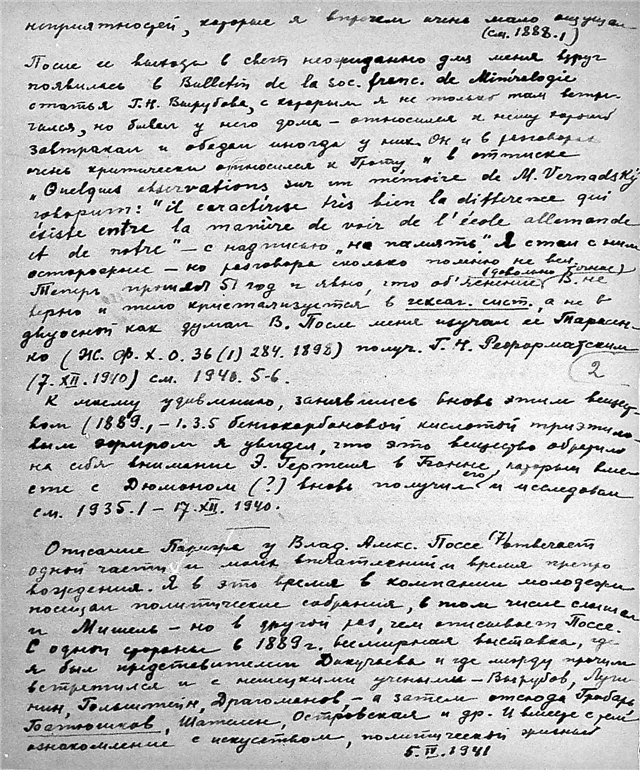 неприятностей, которые я впрочем очень мало ощущал
(см. 1888.1)
После ее выхода в свет неожиданно для меня вдруг
появилась в Bulletin de la Soc. franc. de Minéralogie
статья Г.Н. Вырубова, с которым я не только там встре-
чался, но бывал у него дома – относился к нему хорошо
завтракал и обедал иногда у них. Он и в разговорах
очень критически относился к Гроту, и в оттиске
„Quelques observations sur un mémoire de M. Vernadsky"
говорит: "il caractérise très bien la différence qui
existe entre la manière de voir de l'école allemande
et de notre" – с надписью „на память". Я стал с ним
осторожнее – но разговора сколько помню не вел
Теперь прошел 51 год и явно, что об'яснение (довольно точное) В. не
верно и тело кристализуется в гексаг. сист., а не в
двуосной как думал В. После меня изучал ее Тарасен-
ко (Ж. Ф. Х. О. 36 (1) 284. 1898) получ. Г. Н. Реформатским
(7. XII. 1910) см. 1940. 5-6.
2
К моему удивлению, занявшись вновь этим вещест-
вом (1889, – 1.3.5 бензокарбоновой кислотой триэтило-
вым эфиром я увидел, что это вещество обратило
на себя внимание Э. Гертеля в Бонне, который вме-
сте с Дюмоном (?) вновь получил его и исследовал
см. 1935.1 – 17. XII. 1940.
Описание Парижа у Влад. Алекс. Поссе (7) отвечает
одной части и моих впечатлений и время препро-
вождения. Я в это время в компании молодежи
посещал политические собрания, в том числе слышал
и Мишель – но в другой раз, чем описывает Поссе.
С одной стороны в 1889 г. всемирная выставка, где
я был представителем Докучаева и где между прочим
встретился и с немецкими учеными – Вырубов, Луги-
нин, Гольштейн, Драгоманов, – а затем отсюда Гробарь,
Батюшков, Шателен, Островская и др. И вместе с тем,
ознакомление с искусством, политической жизнью
5. IV. 1941